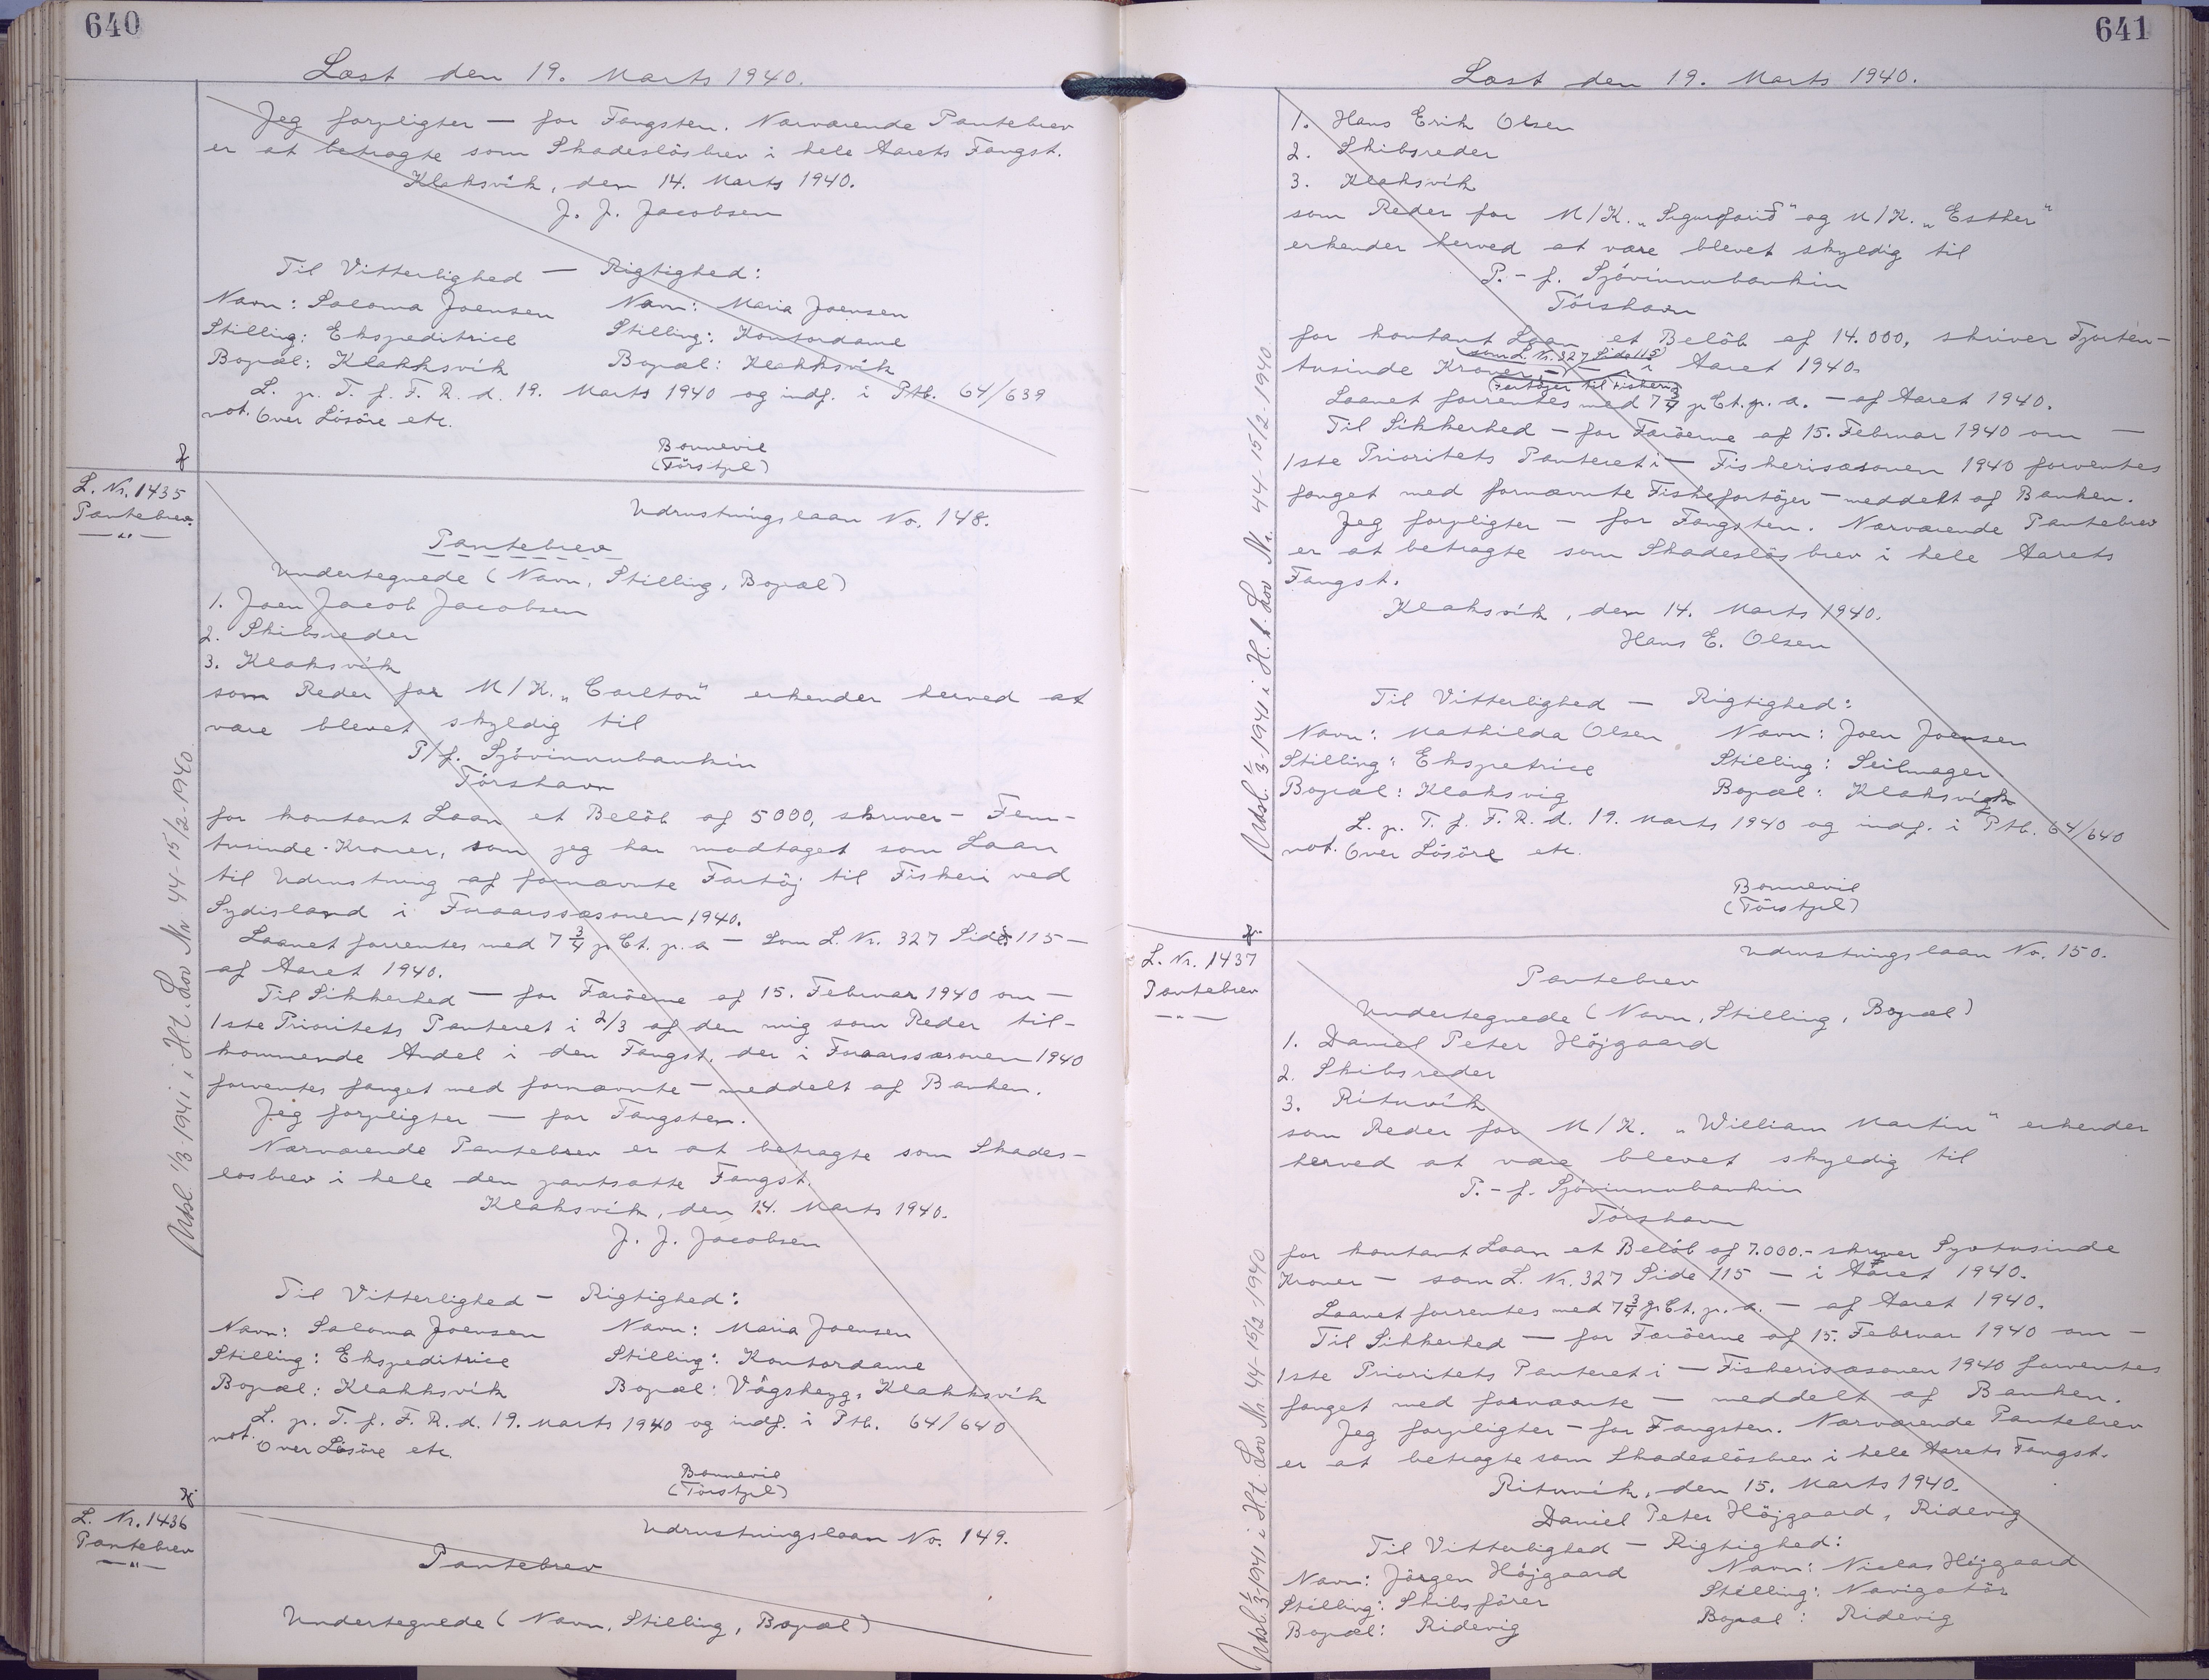 640
Læst den 19. Marts 1940.
Jeg forpligter — for Fangsten. Nærværende Pantebrev
er at betragte som Skadeslösbrev i hele Aarets Fangst.
Klaksvík, den 14. Marts 1940.
J. J. Jacobsen
Til Vitterlighed — Rigtighed:
Navn: Saloma Joensen Navn: Maria Joensen
Stillig: Ekspeditrice Stilling: Kontordame
Bopæl: Klakksvík Bopæl: Klakksvík
L. p. T. f. F. R. d. 19. Marts 1940 og indf. i Ptb. 64/639
not. Over Lösöre etc.
Bonnevie
(Törstpl)
L. Nr. 1435
Pantebrev.
—"—
Udrustningslaan No. 148.
Pantebrev
Undertegnede (Navn, Stilling, Bopæl)
1. Joen Jacob Jacobsen
2. Skibsreder
3. Klaksvík
som Reder for M/K. „Carlton" erkender herved at
være blevet skyldig til
P/f. Sjóvinnubankin
Tórshavn
for kontant Laan et Belöb af 5000, skriver - Fem-
tusinde - Kroner, som jeg har modtaget som Laan
til Udrustning af fornævnte Fartöj til Fiskeri ved
Sydisland i Foraarssæsonen 1940.
Laanet forrentes med 7 3/4 p Ct. p. a — som L. Nr. 327 Side 115 —
af Aaret 1940.
Til Sikkerhed — for Færöerne af 15. Februar 1940 om —
1ste Prioritets Panteret i 2/3 af den mig som Reder til-
kommende Andel i den Fangst, der i Foraarssæsonen 1940
forventes fanget med fornævnte — meddelt af Banken.
Jeg forpligter — for Fangsten.
Nærværende Pantebrev er at betragte som Skades-
lösbrev i hele den pantsatte Fangst.
Klaksvík, den 14. Marts 1940.
J. J. Jacobsen
Til Vitterlighed — Rigtighed:
Navn: Saloma Joensen Navn: Maria Joensen
Stilling: Ekspeditrice Stilling: Kontordame
Bopæl: Klakksvík Bopæl: Vágsheyg, Klakksvík
L. p. T. f. F. R. d. 19. Marts 1940 og indf. i Ptb. 64/640
not. Over Lösöre etc.
Bonnevie
(Törstpl)
Udsl. 1/3-1941 i H.t. Lov Nr 44-15/2-1940
L. Nr. 1436
Pantebrev
—"—
Udrustningslaan No. 149.
Pantebrev
Undertegnede (Navn, Stilling, Bopæl)
641
Læst den 19. Marts 1940.
1. Hans Erik Olsen
2. Skibsreder
3. Klaksvík
som Reder for M/K. „Sigurfarið" og M/K. „Esther"
erkender herved at være blevet skyldig til
P.-f. Sjóvinnubankin
Tórshavn
for kontant Laan et Belöb af 14.000, skriver Fjorten-
som L. Nr. 327 Side 115
tusinde Kroner, — i Aaret 1940.
(Fartöjer til Fiskeri)
Laanet forrentes med 7 3/4 p Ct. p. a. — af Aaret 1940.
Til Sikkerhed — for Færöerne af 15. Februar 1940 om —
1ste Prioritets Panteret i — Fiskerisæsonen 1940 forventes
fanget med fornævnte Fiskefartöjer — meddelt af Banken.
Jeg forpligter — for Fangsten. Nærværende Pantebrev
er at betragte som Skadeslös brev i hele Aarets
Fangst.
Klaksvík, den 14. Marts 1940.
Hans E. Olsen
Til Vitterlighed — Rigtighed:
Navn: Mathilda Olsen Navn: Joen Joensen
Stilling: Ekspetrice Stilling: Seilmager
Bopæl: Klaksvig Bopæl: Klaksvík
L. p. T. f. F. R. d. 19. Marts 1940 og indf. i Ptb. 64/640
not. Over Lösöre etc.
Bonnevie
(Törstpl)
Udsl. 1/3-1941 i H.t. Lov Nr. 44-15/2-1940
L. Nr. 1437
Pantebrev
—"—
Udrustningslaan No. 150.
Pantebrev
Undertegnede (Navn, Stilling, Bopæl)
1. Daniel Peter Höjgaard
2. Skibsreder
3. Rituvík
som Reder for M/K. „William Martin" erkender
herved at være blevet skyldig til
P.-f. Sjóvinnubankin
Tórshavn
for kontant Laan et Belöb af 7.000.- skriver Syvtusinde
Kroner — som L. Nr. 327 Side 115 — i Aaret 1940.
Laanet forrentes med 7 3/4 p Ct. p. a. — af Aaret 1940.
Til Sikkerhed — for Færöerne af 15. Februar 1940 om —
1ste Prioritets Panteret i — Fiskerisæsonen 1940 forventes
fanget med fornævnte — meddelt af Banken.
Jeg forpligter — for Fangsten. Nærværende Pantebrev
er at betragte som Skadeslösbrev i hele Aarets Fangst.
Rituvík, den 15. Marts 1940.
Daniel Peter Höjgaard, Ridevig
Til Vitterlighed — Rigtighed:
Navn: Jörgen Höjgaard Navn: Niclas Höjgaard
Stilling: Skibsförer Stilling: Navigatör
Bopæl: Ridevig Bopæl: Ridevig
Udsl. 1/3-1941 i H.t. Lov Nr 44-15/2-1940